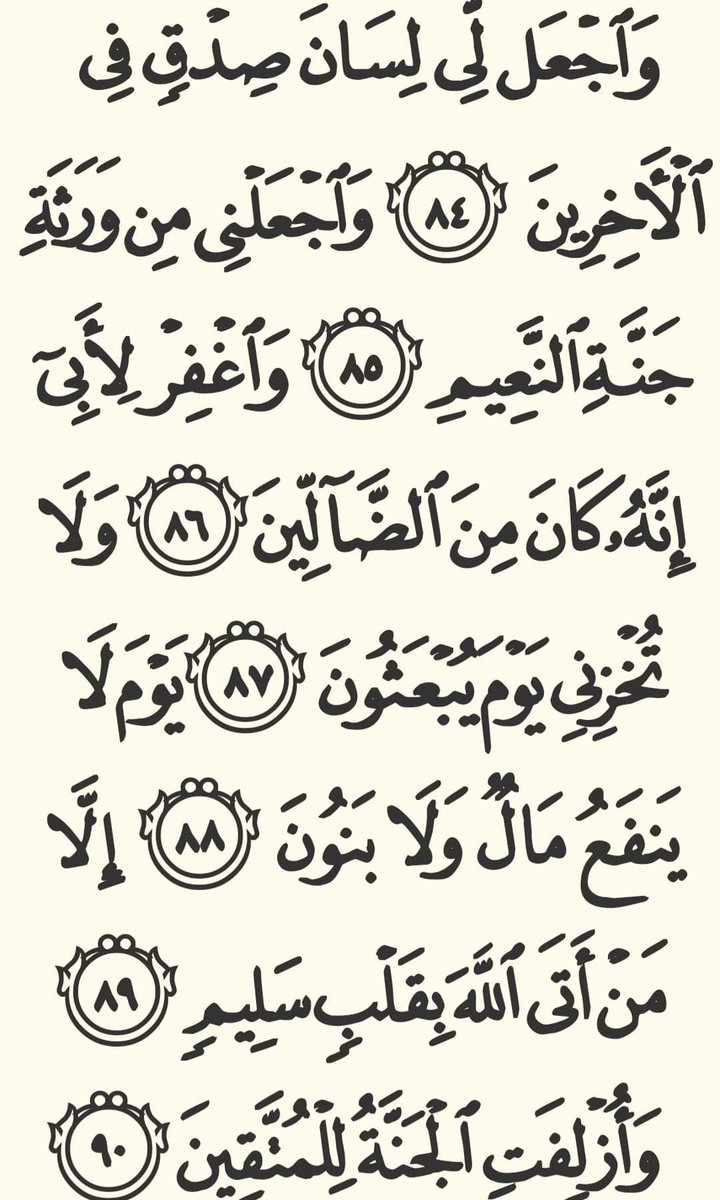 وَٱجْعَل لِّى لِسَانَ صِدْقٍ فِى
ٱلْأَخِرِينَ ٨٤ وَٱجْعَلْنِى مِن وَرَثَةِ
جَنَّةِ ٱلنَّعِيمِ ٨٥ وَٱغْفِرْ لِأَبِىٓ
إِنَّهُۥ كَانَ مِنَ ٱلضَّآلِّينَ ٨٦ وَلَا
تُخْزِنِى يَوْمَ يُبْعَثُونَ ٨٧ يَوْمَ لَا
يَنفَعُ مَالٌ وَلَا بَنُونَ ٨٨ إِلَّا
مَنْ أَتَى ٱللَّهَ بِقَلْبٍ سَلِيمٍ ٨٩
وَأُزْلِفَتِ ٱلْجَنَّةُ لِلْمُتَّقِينَ ٩٠